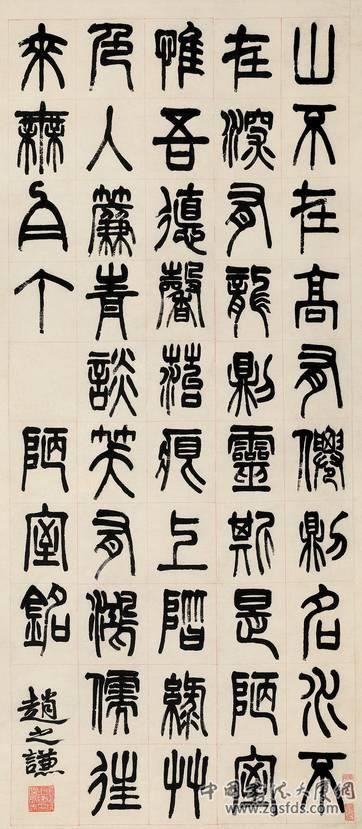 山不在高有僊則名水不
在深有龍則靈斯是陋室
惟吾德馨菭痕上階綠艸
色入簾青談笑有鴻儒往
來無白丁 陋室銘
趙之謙
www.zgsfds.com